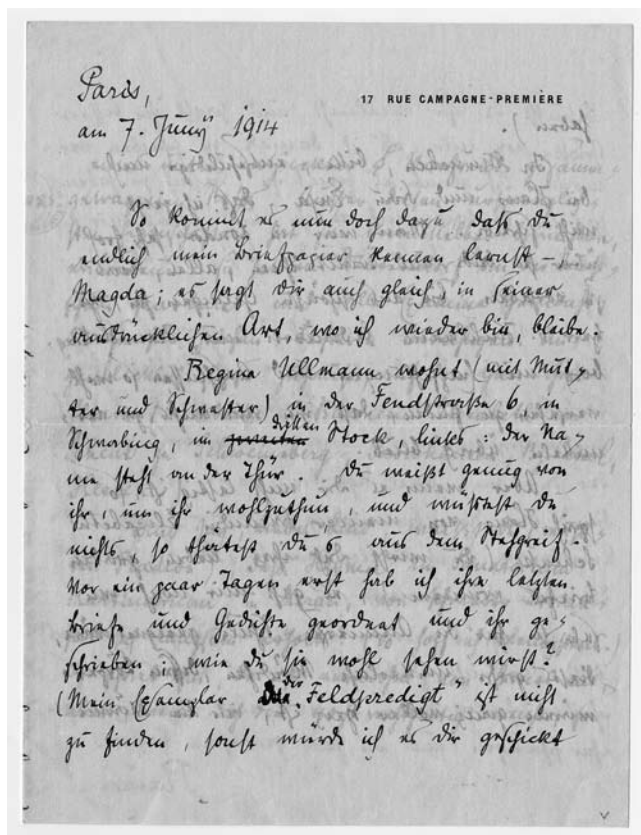 Paris,
17 RUE CAMPAGNE-PREMIÈRE
am 7. Juny 1914
So kommt es nun doch dazu daß Du
endlich mein Briefpapier kennen lernst –,
Magda; es sagt Dir auch gleich, in seiner
ausdrücklichen Art, wo ich wieder bin, bleibe.
Regina Ullmann wohnt (mit Mut-
ter und Schwester) in der Fendstraße 6, in
dritten
Schwabing, im zweiten Stock, links: der Na-
me steht an der Thür. Du weißt genug von
ihr, um ihr wohlzuthun, und wüßtest Du
nichts, so thätest Du's aus dem Stehgreif.
Vor ein paar Tagen erst hab ich ihre letzten
Briefe und Gedichte geordnet und ihr ge-
schrieben; wie Du sie wohl sehen wirst?
(Mein Exemplar der „Feldpredigt" ist nicht
zu finden, sonst würde ich es Dir geschickt